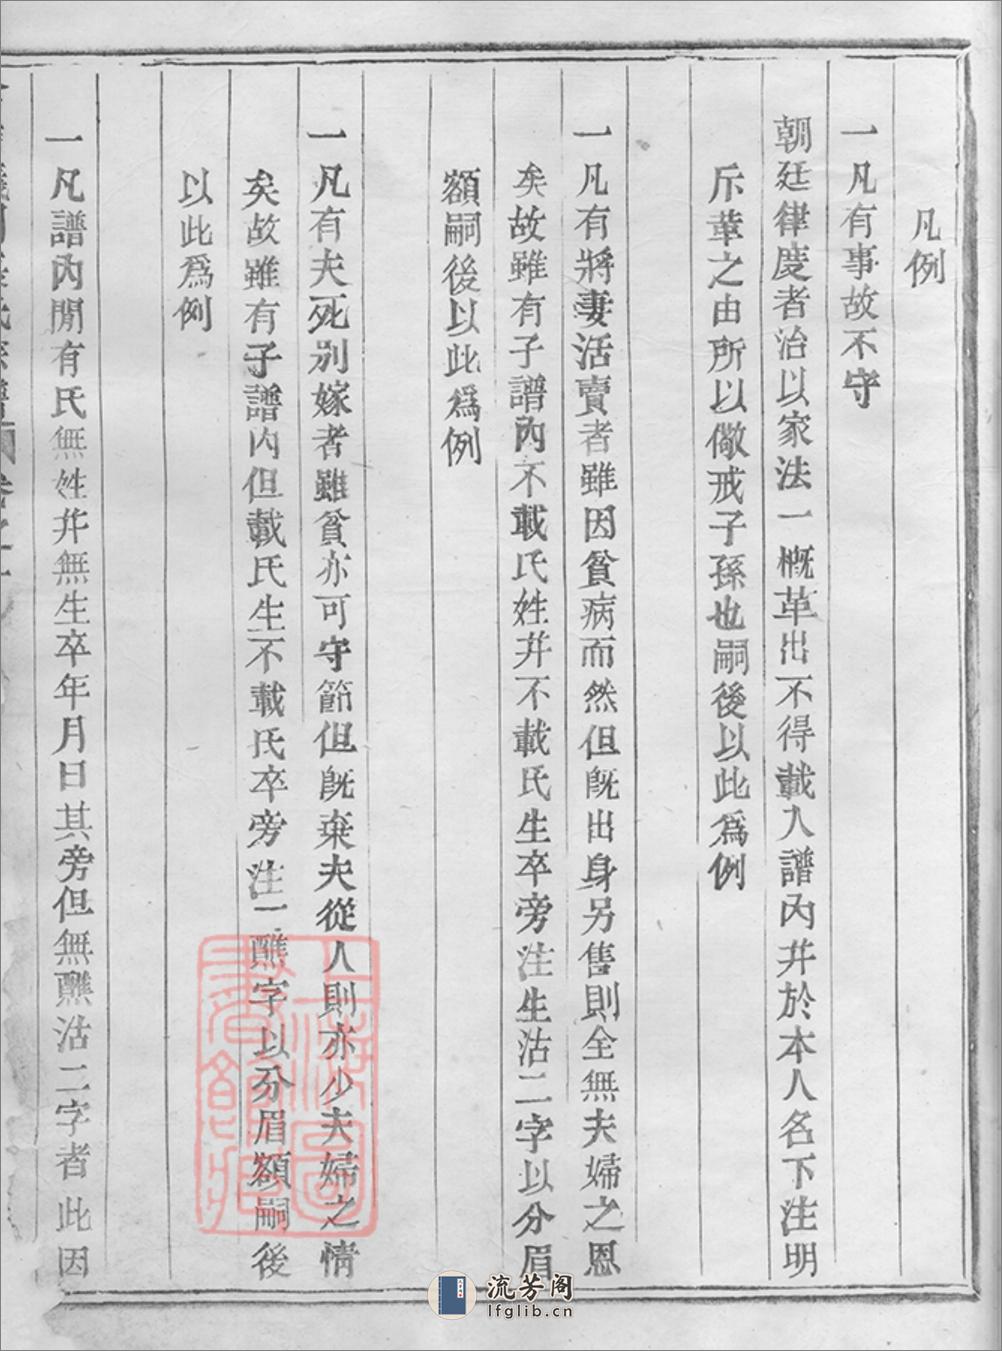 凡例
一凡有事故不守
朝廷律度者治以家法一概革出不得載入譜内并於本人名下注明
斥革之由所以儆戒子孫也嗣後以此爲例
一凡有將妻活賣者雖因貧病而然但既出身另售則全無夫婦之恩
矣故雖有子譜内不載氏姓并不載氏生卒旁注生沽二字以分眉
額嗣後以此爲例
一凡有夫死别嫁者雖貧亦可守節但既棄夫從人則亦少夫婦之情
矣故雖有子譜内但載氏生不載氏卒旁注一醮字以分眉額嗣後
以此爲例
一凡譜内閒有氏無姓并無生卒年月日其旁但無醮沽二字者此因
上海圖書館藏
流芳阁
lfglib.cn